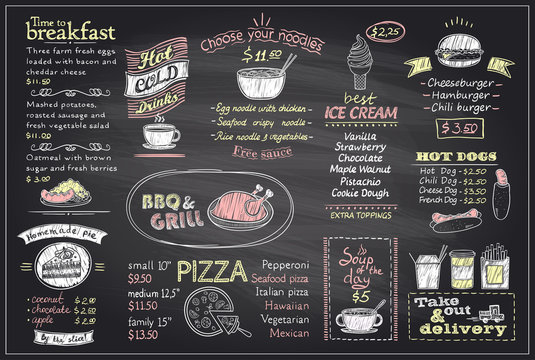 Time to
breakfast
Three farm fresh eggs
loaded with bacon and
cheddar cheese
$11.50
Mashed potatoes,
roasted sausage and
fresh vegetable salad
$11.00
Oatmeal with brown
sugar and fresh berries
$3.00
Homemade pie
coconut $2.00
chocolate $2.50
apple $2.00
by the slice!
Hot
COLD
Drinks
Choose your noodles
$11.50
Egg noodle with chicken
Seafood crispy noodle
Rice noodle & vegetables
Free sauce
BBQ &
GRILL
PIZZA
small 10"
$9.50
medium 12,5"
$11.50
family 15"
$13.50
Pepperoni
Seafood pizza
Italian pizza
Hawaiian
Vegetarian
Mexican
$2,25
best
ICE CREAM
Vanilla
Strawberry
Chocolate
Maple Walnut
Pistachio
Cookie Dough
EXTRA TOPPINGS
Soup
of the
day
$5
Cheeseburger
Hamburger
Chili burger
$3.50
HOT DOGS
Hot Dog - $2.50
Chili Dog - $2.50
Cheese Dog - $3.50
French Dog - $2.50
Take
out
&
delivery